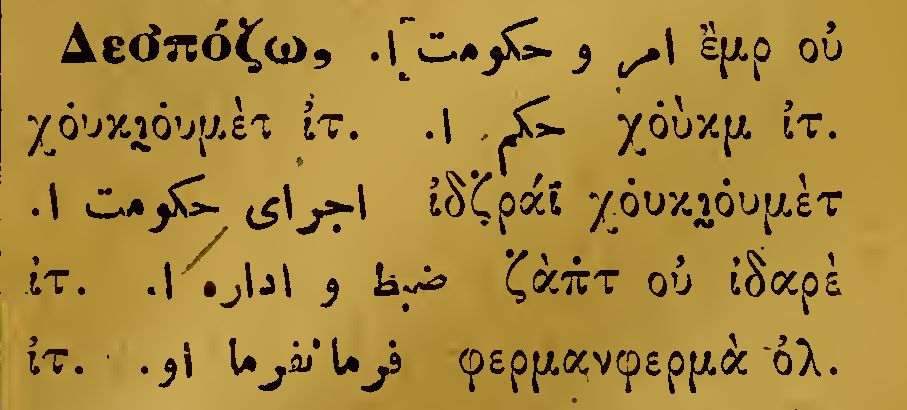 Δεσπόζω, امر و حكومت ا. ἒμρ οὐ
χὀυκιὀυμὲτ ἰτ. حكم ا. χὀὺκμ ἰτ.
اجرای حكومت ا. ἰδζραΐ χὀυκιὀυμὲτ
ἰτ. ضبط و اداره ا. ζὰπτ οὐ ἰδαρὲ
ἰτ. فرمانفرما او. φερμανφερμὰ ὀλ.